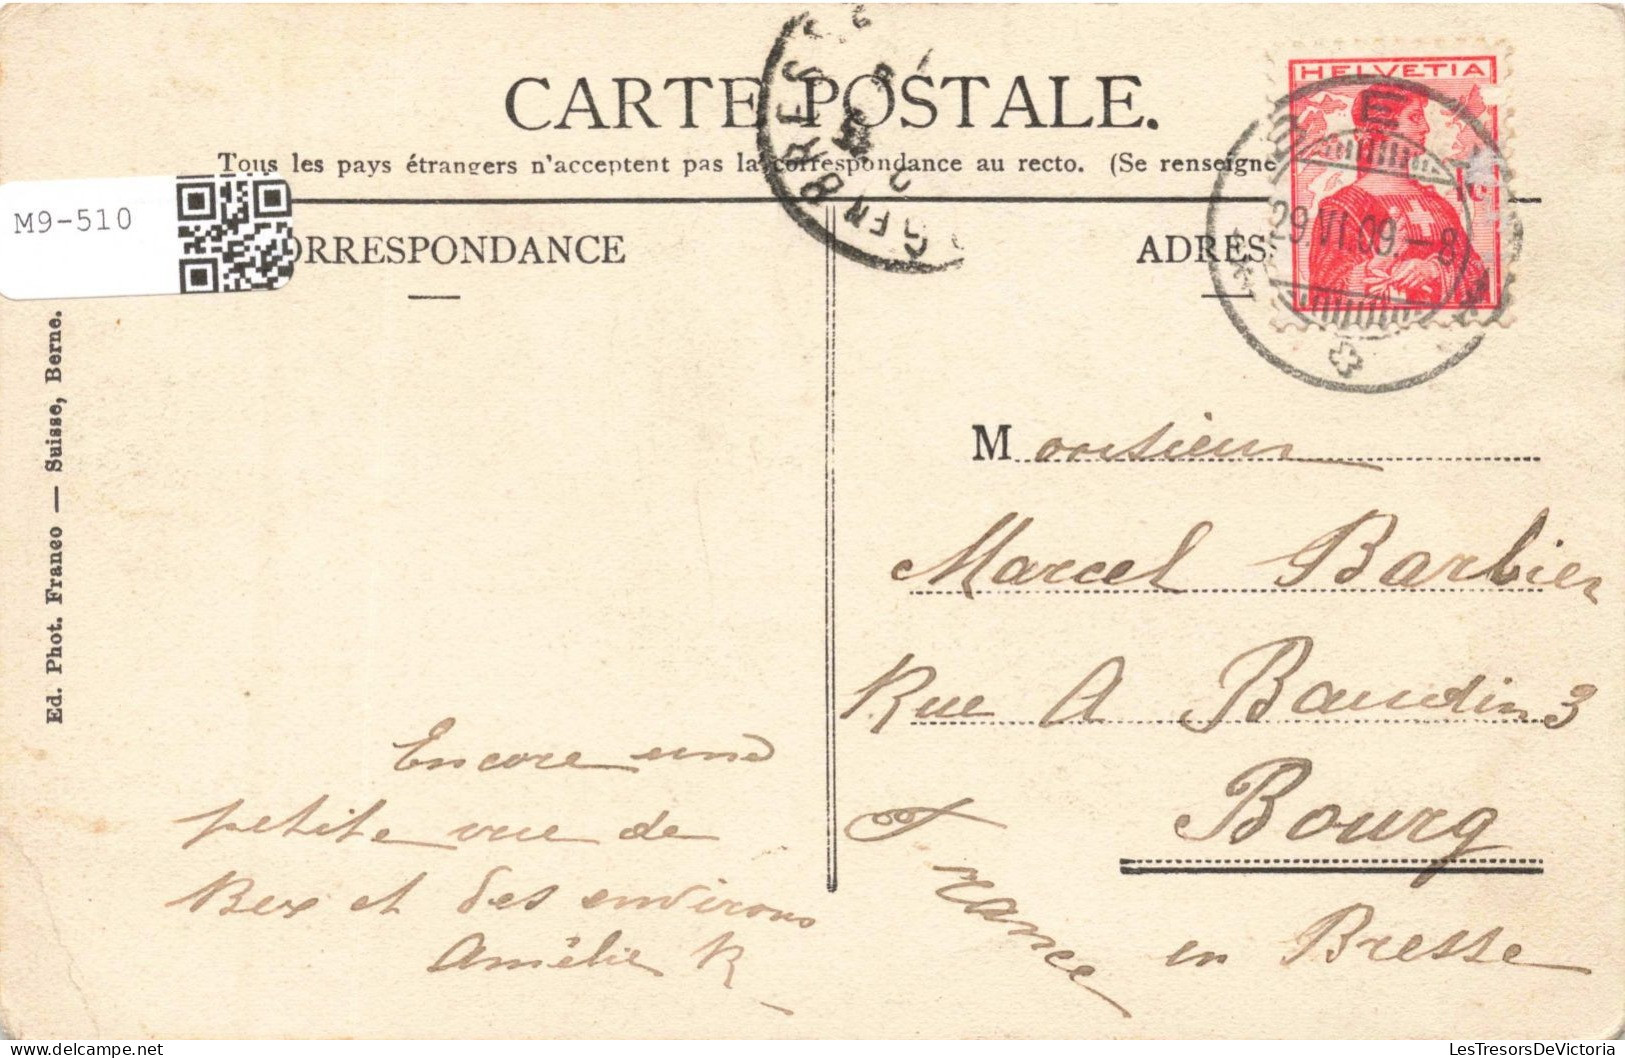 CARTE POSTALE.
Tous les pays étrangers n'acceptent pas la correspondance au recto. (Se renseigne
M9-510
ORRESPONDANCE
ADRES
HELVETIA
BEX
29.VI.09.-8
BRESSE
Ed. Phot. Franco — Suisse, Berne.
Monsieur
Marcel Barbier
Rue A Baudin 3
Bourg
en Bresse
France
Encore une
petite vue de
Bex et des environs
Amélie R
LesTresorsDeVictoria